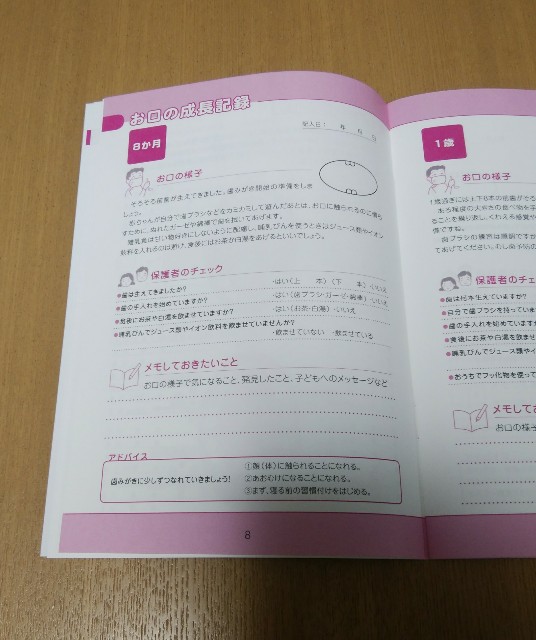 お口の成長記録
8か月
記入日: 年 月 日
お口の様子
そろそろ前歯が生えてきました。歯みがき開始の準備をしま
しょう。
赤ちゃんが自分で歯ブラシなどをカミカミして遊んだあとは、お口に触れられるのに慣ら
すために、ぬれたガーゼや綿棒で歯を拭いてあげます。
離乳食は甘い物好きにしないように配慮し、哺乳びんを使うときはジュース類やイオン
飲料を入れるのは避け、食後にはお茶か白湯をあげるといいでしょう。
保護者のチェック
●歯は生えてきましたか? ・はい(上 本)(下 本)・いいえ
●歯の手入れを始めていますか? ・はい(歯ブラシ・ガーゼ・綿棒)・いいえ
●食後にお茶や白湯を飲ませていますか? ・はい(お茶・白湯)・いいえ
●哺乳びんでジュース類やイオン飲料を飲ませていませんか? ・飲ませていない ・飲ませている
メモしておきたいこと
お口の様子で気になること、発見したこと、子どもへのメッセージなど
アドバイス
歯みがきに少しずつなれていきましょう!
①顔(体)に触られることになれる。
②あおむけになることになれる。
③まず、寝る前の習慣付けをはじめる。
8
1歳
お口の様子
1歳過ぎには上下8本の前歯がそろ
ある程度の大きさの食べ物を
ることを繰り返し、くわえる感覚や
歯ブラシの練習は機嫌ですが
てあげてください。むし歯予防の
保護者のチェック
●歯は何本生えていますか?
●自分で歯ブラシを持っていま
●歯の手入れを始めていますか
●食後にお茶や白湯を飲ませ
●哺乳びんでジュース類やイオ
●おうちでフッ化物を使って
メモして
お口の様子